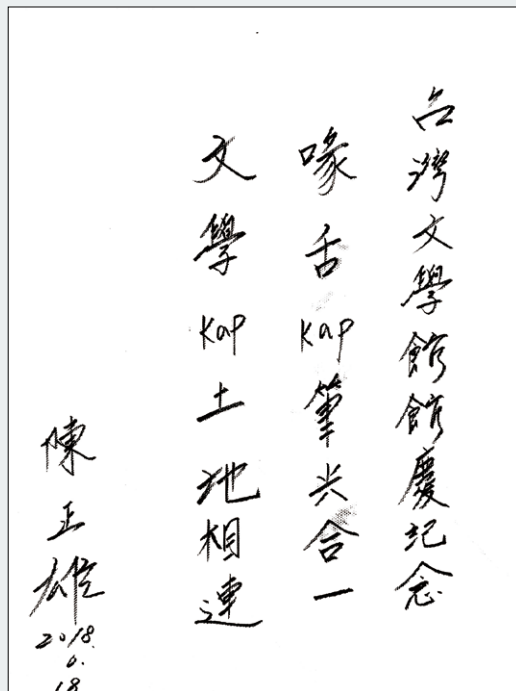 台灣文學館館慶記念
喙舌kap筆尖合一
文學kap土地相連
陳正雄
2018.
6.
18